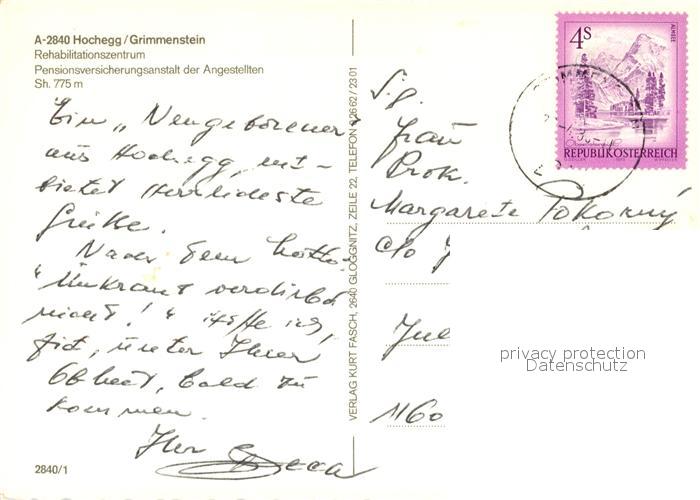 A-2840 Hochegg/Grimmenstein
Rehabilitationszentrum
Pensionsversicherungsanstalt der Angestellten
Sh. 775 m
Ein „Neugeborener"
aus Hochegg, ent-
bietet herrlichste
Grüße.
Nach dem Motto
"Unkraut verdirbt
nicht!" hoffe ich,
unter Ihrer
Obheit, bald zu
kommen.
Ihr
2840/1
VERLAG KURT FASCH, 2640 GLOGGNITZ, ZEILE 22, TELEFON 0 26 62 / 23 01
4s
ALMSEE
REPUBLIK ÖSTERREICH
S.g.
Frau
Prok.
Margarete Pokorný
c/o
1160
privacy protection
Datenschutz